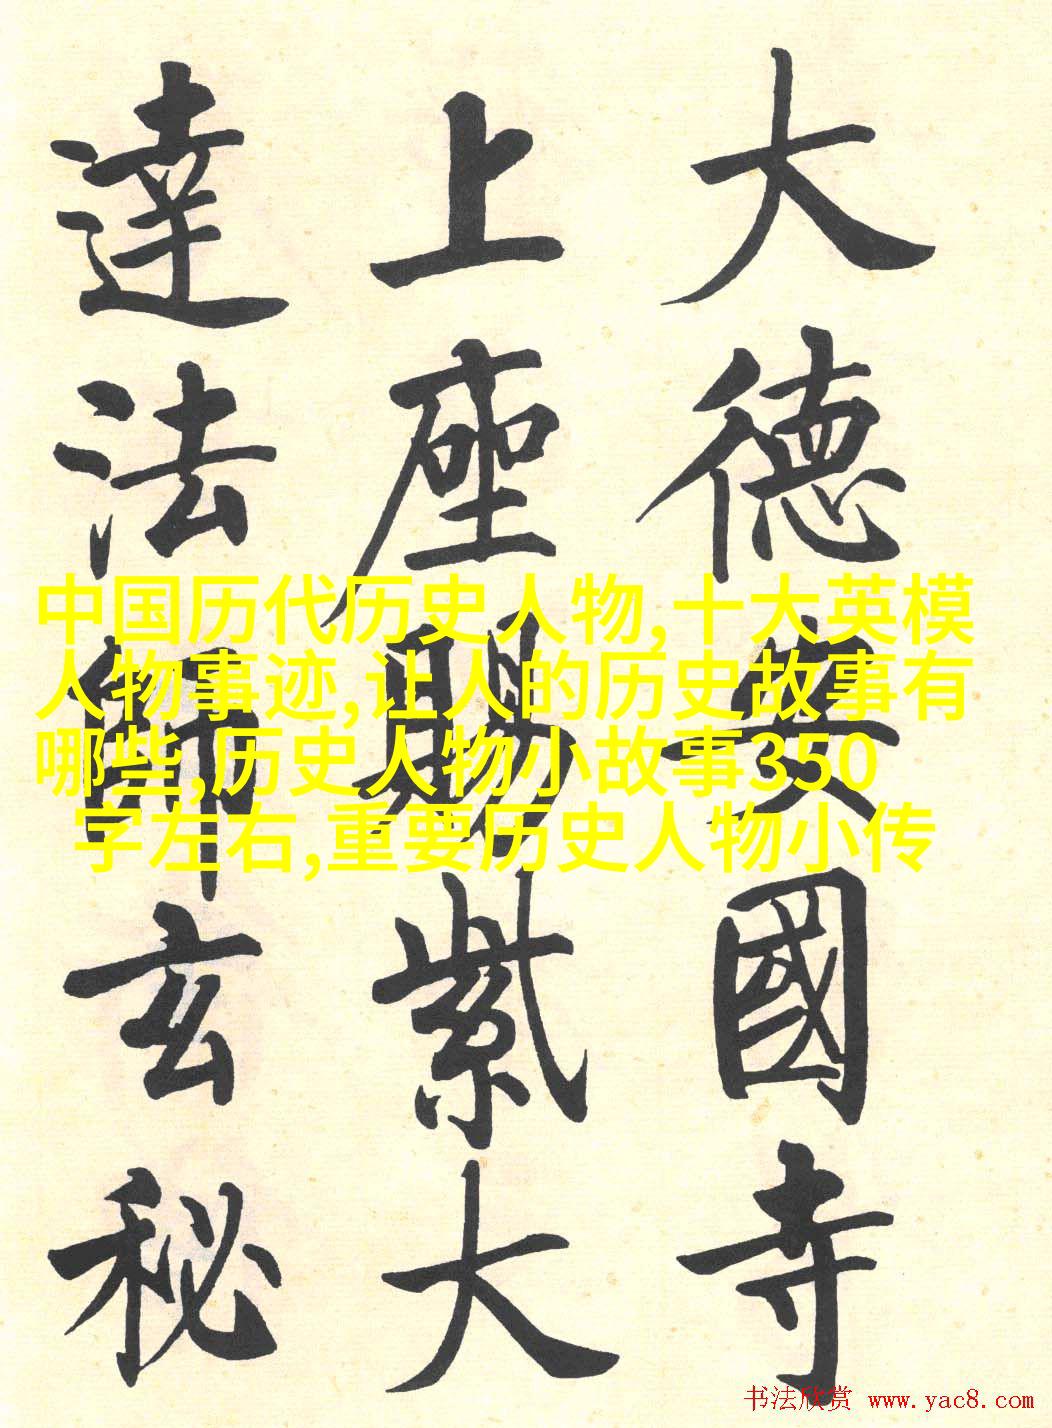 大德安國寺
上座賜紫大
達法師玄秘
中国历代历史人物,十大英模
人物事迹,让人的历史故事有
哪些,历史人物小故事350
字左右,重要历史人物小传
书法欣赏 www.yac8.com